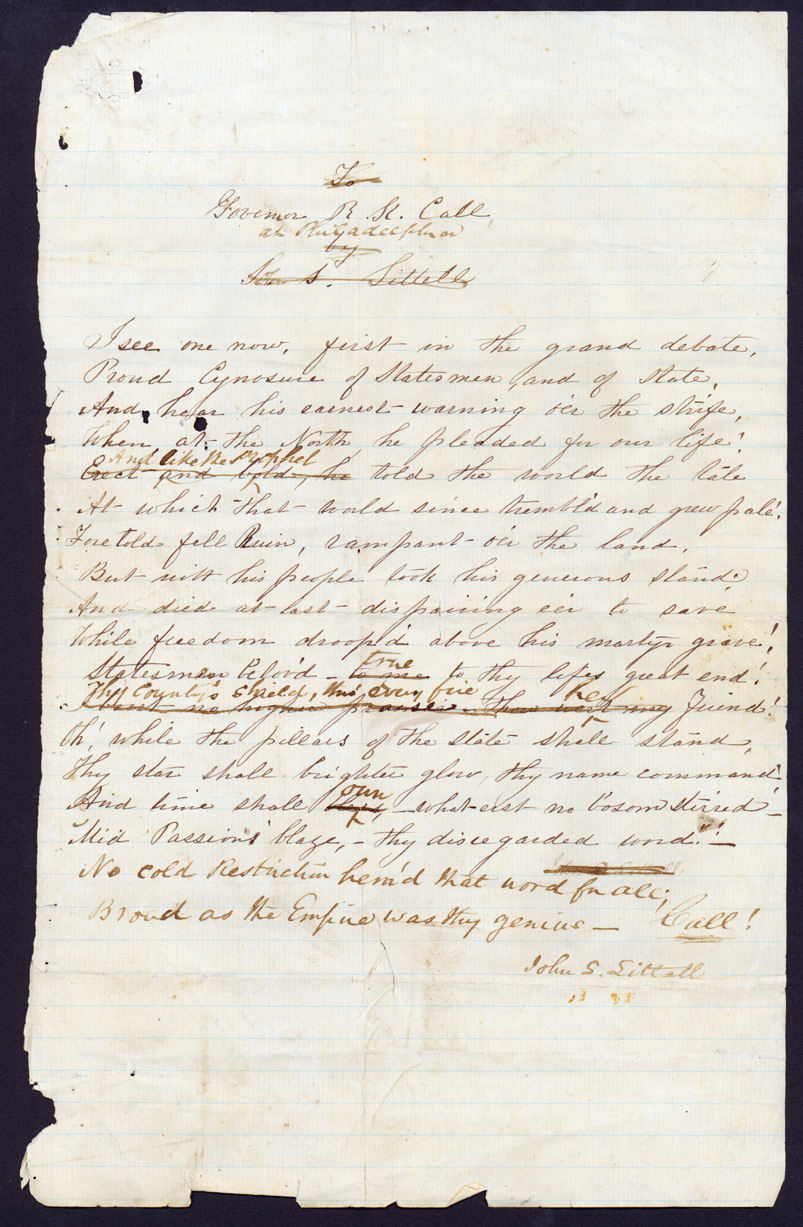 To
Governor R. K. Call,
at Philadelphia
by
John S. Littell
I see one now, first in the grand debate,
Proud Cynosure of Statesmen, and of State,
And hear his earnest warning o'er the strife,
When at the North, he pleaded for our life!
And like the Prophet
Erect and bold, he told the world the tale
At which that world since trembl'd and grew pale!
Foretold fell Ruin, rampant o'er the land,
But with his people took his generous stand:
And died at last dispairing e'er to save
While freedom droop'd above his martyr grave!
true
Statesman belov'd – to me to thy life's great end!
Thy Country's Shield, thro' every fire her
I boast no higher praise than Friend!
Oh! while the pillars of the State shall stand,
Thy star shall brighter glow, thy name command
own
And time shall – what erst no bosom stirred –
Mid Passions' blaze, – thy disregarded word! –
No cold Restriction hem'd that word for all;
Broad as the Empire was thy genius – Call!
John S. Littell